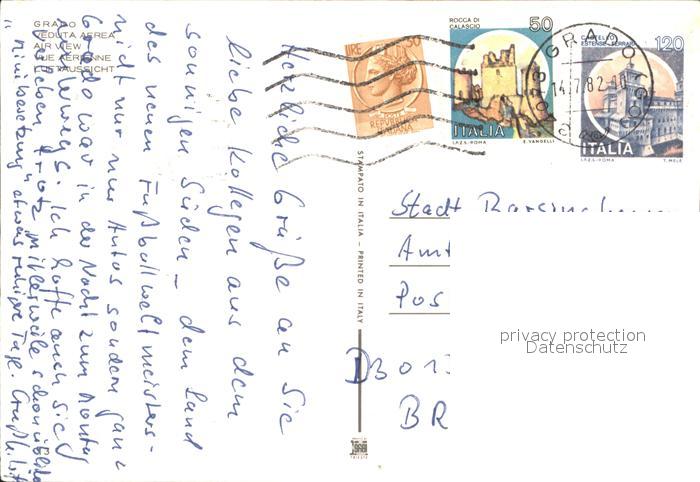 GRADO
VEDUTA AEREA
AIR VIEW
VUE AERIENNE
LUFTAUSSICHT
Herzliche Grüße an Sie
liebe Kollegen aus dem
sonnigen Süden – dem Land
des neuen Fußballweltmeisters –
nicht nur nur Autos sondern ganz
Grado war in der Nacht zum Montag
unterwegs. Ich hoffe auch Sie
haben trotz mittlerweile schon üblicher
"Minibesetzung" etwas ruhige Tage. Gruß
STAMPATO IN ITALIA – PRINTED IN ITALY
LIRE 50
POSTE
REPUBBLICA
ITALIANA
ROCCA DI
CALASCIO
50
ITALIA
I.P.Z.S.-ROMA
E. VANGELLI
GRADO
14.7.82
CASTELLO
ESTENSE-FERRARA
120
ITALIA
I.P.Z.S.-ROMA
T. MELE
Stadt Barsinghausen
Amt
Pos
D3013
BR
privacy protection
Datenschutz